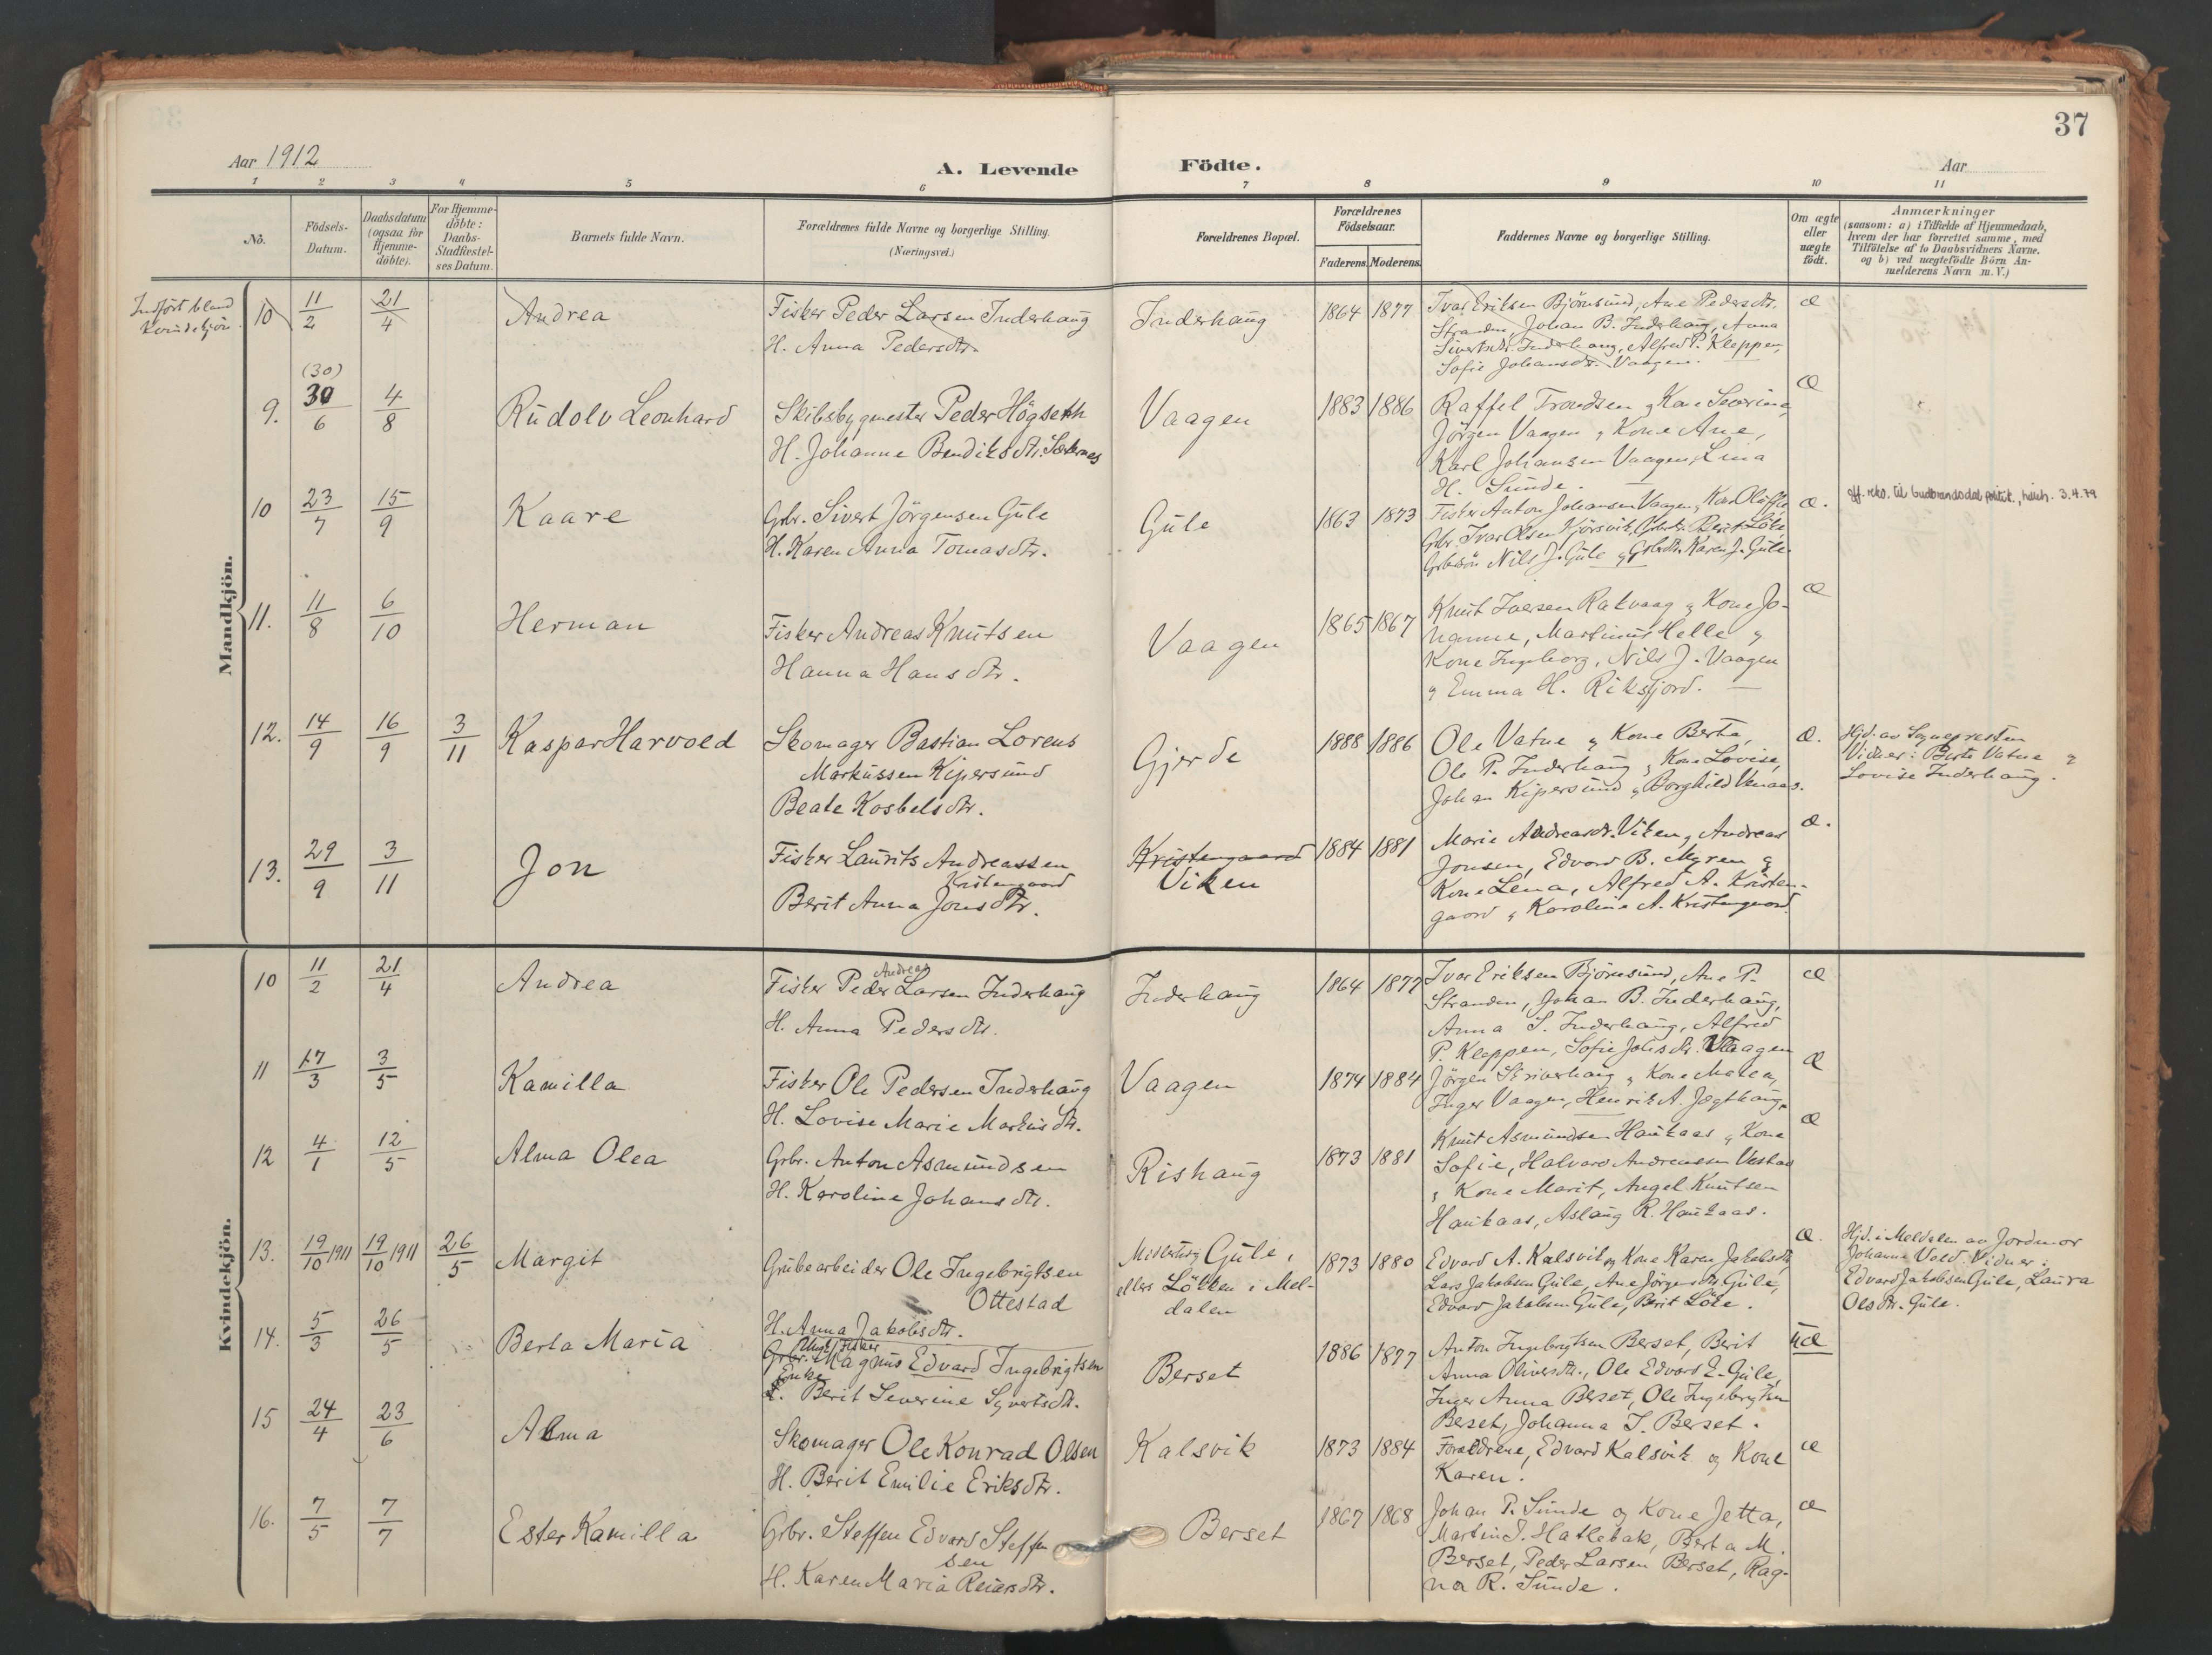 37
Aar 1912
A. Levende Födte.
Aar
1 2 3 4 5 6 7 8 9 10 11
No.
Födsels-Datum.
Daabsdatum (ogsaa for Hjemme-döbte).
For Hjemme-döbte: Daabs-Stadfæstelses Datum.
Barnets fulde Navn.
Forældrenes fulde Navne og borgerlige Stilling. (Næringsvei.)
Forældrenes Bopæl.
Forældrenes Födselsaar.
Faderens. Moderens.
Faddernes Navne og borgerlige Stilling.
Om ægte eller uægte födt.
Anmærkninger
(saasom: a) i Tilfælde af Hjemmedaab,
hvem der har forrettet samme, med
Tilföielse af to Daabsvidners Navne.
og b) ved uægtefödte Börn An-
melderens Navn m. V.)
Mandkjön.
Indfört bland
kvindekjön.
10 11/2 21/4 Andrea
Fisker Peder Larsen Inderhaug
H. Anna Pedersdtr.
Inderhaug 1864 1877
Ivar Eriksen Björnsund, Ane Pedersdtr.
Stranden, Johan B. Inderhaug, Anna
Sivertsdtr. Inderhaug, Alfred P. Kleppen,
Sofie Johansdtr. Vaagen.
æ
9. (30) 30/6 4/8 Rudolv Leonhard
Skibsbygmester Peder Högseth
H. Johanne Bendiksdtr.
Vaagen 1883 1886
Raffel Trondsen & Kone Severine,
Jörgen Vaagen & Kone Ane,
Karl Johansen Vaagen, Lina
H. Sunde.
æ
10 23/7 15/9 Kaare
Grbr. Sivert Jörgensen Gule
H. Karen Anna Tomasdtr.
Gule 1863 1873
Fisker Anton Johansen Vaagen,
Grbr. Ivar Olsen Kjörsvik, Berit Löke,
Nils J. Gule & Karen J. Gule.
æ.
til Gudbrandsdal 3.4.79
11. 11/8 6/10 Herman
Fisker Andreas Knutsen
Hanna Hansdtr.
Vaagen 1865 1867
Knut Iversen Rakvaag & Kone Jo-
hanne, Martinus Helle &
Kone Ingeborg, Nils J. Vaagen
& Emma H. Riksfjord.
æ
12. 14/9 16/9 3/11 Kaspar Harvold
Skomager Bastian Lorens
Markussen Kipersund
Beate Kosbelsdtr.
Gjerde 1888 1886
Ole Vatne & Kone Berta,
Ole P. Inderhaug & Kone Lovise,
Johan Kipersund & Borghild Venaas.
æ.
Hjd. av Sognepresten
Vidner: Berte Vatne &
Lovise Inderhaug.
13. 29/9 3/11 Jon
Fisker Laurits Andreassen
Kristengaard
Berit Anna Jonsdtr.
Kristengaard
Viken
1884 1881
Marie Andreasdtr. Viken, Andreas
Jonsen, Edvard B. Myren &
Kone Lena, Alfred A. Kristen-
gaard & Karoline A. Kristengaard.
æ.
Kvindekjön.
10 11/2 21/4 Andrea
Andreas
Fisker Peder Larsen Inderhaug
H. Anna Pedersdtr.
Inderhaug 1864 1877
Ivar Eriksen Björnsund, Ane P.
Stranden, Johan B. Inderhaug,
Anna S. Inderhaug, Alfred
P. Kleppen, Sofie Johsdtr. Vaagen
æ
11 17/3 3/5 Kamilla
Fisker Ole Pedersen Inderhaug
H. Lovise Marie Markusdtr.
Vaagen 1874 1884
Jörgen Skriverhaug & Kone Malena,
Inger Vaagen, Henrik A. Jægthaug.
æ
12 4/1 12/5 Alma Olea
Grbr. Anton Asmundsen
H. Karoline Johansdtr.
Rishaug 1873 1881
Knut Asmundsen Haukaas & Kone
Sofie, Halvard Andreassen Vestad
& Kone Marit, Angel Knutsen
Haukaas, Aslaug R. Haukaas.
æ
13. 19/10 1911 19/10 1911 26/5 Margit
Grubearbeider Ole Ingebrigtsen
Ottestad
H. Anna Jakobsdtr.
Midlertidig Gule,
ellers Lökken i Mel-
dalen
1873 1880
Edvard A. Kalsvik og Kone Karen Jakobsdtr.
Lars Jakobsen Gule, Ane Jörgensdtr. Gule,
Edvard Jakobsen Gule, Berit Löke.
æ.
Hjd. i Meldalen av Jordmor
Johanna Vold. Vidner:
Edvard Jakobsen Gule, Laura
Olsdtr. Gule.
14. 5/3 26/5 Berta Maria
Grbr. Ungk. Fisker
Magnus Edvard Ingebrigtsen
Enke
Berit Severine Syvertsdtr.
Berset 1886 1877
Anton Ingebrigtsen Berset, Berit
Anna Oliversdtr., Ole Edvard E. Gule,
Inger Anna Berset, Ole Ingebrigtsen
Berset, Johanna I. Berset.
uæ
15 24/4 23/6 Alma
Skomager Ole Konrad Olsen
H. Berit Emilie Eriksdtr.
Kalsvik 1873 1884
Forældrene, Edvard Kalsvik og Kone
Karen.
æ
16. 7/5 7/7 Ester Kamilla
Grbr. Steffen Edvard Steffen
sen
H. Karen Maria Reiarsdtr.
Berset 1867 1868
Johan P. Sunde og Kone Jetta,
Martin J. Hatlebak, Berta M.
Berset, Peder Larsen Berset, Rag-
na R. Sunde.
æ